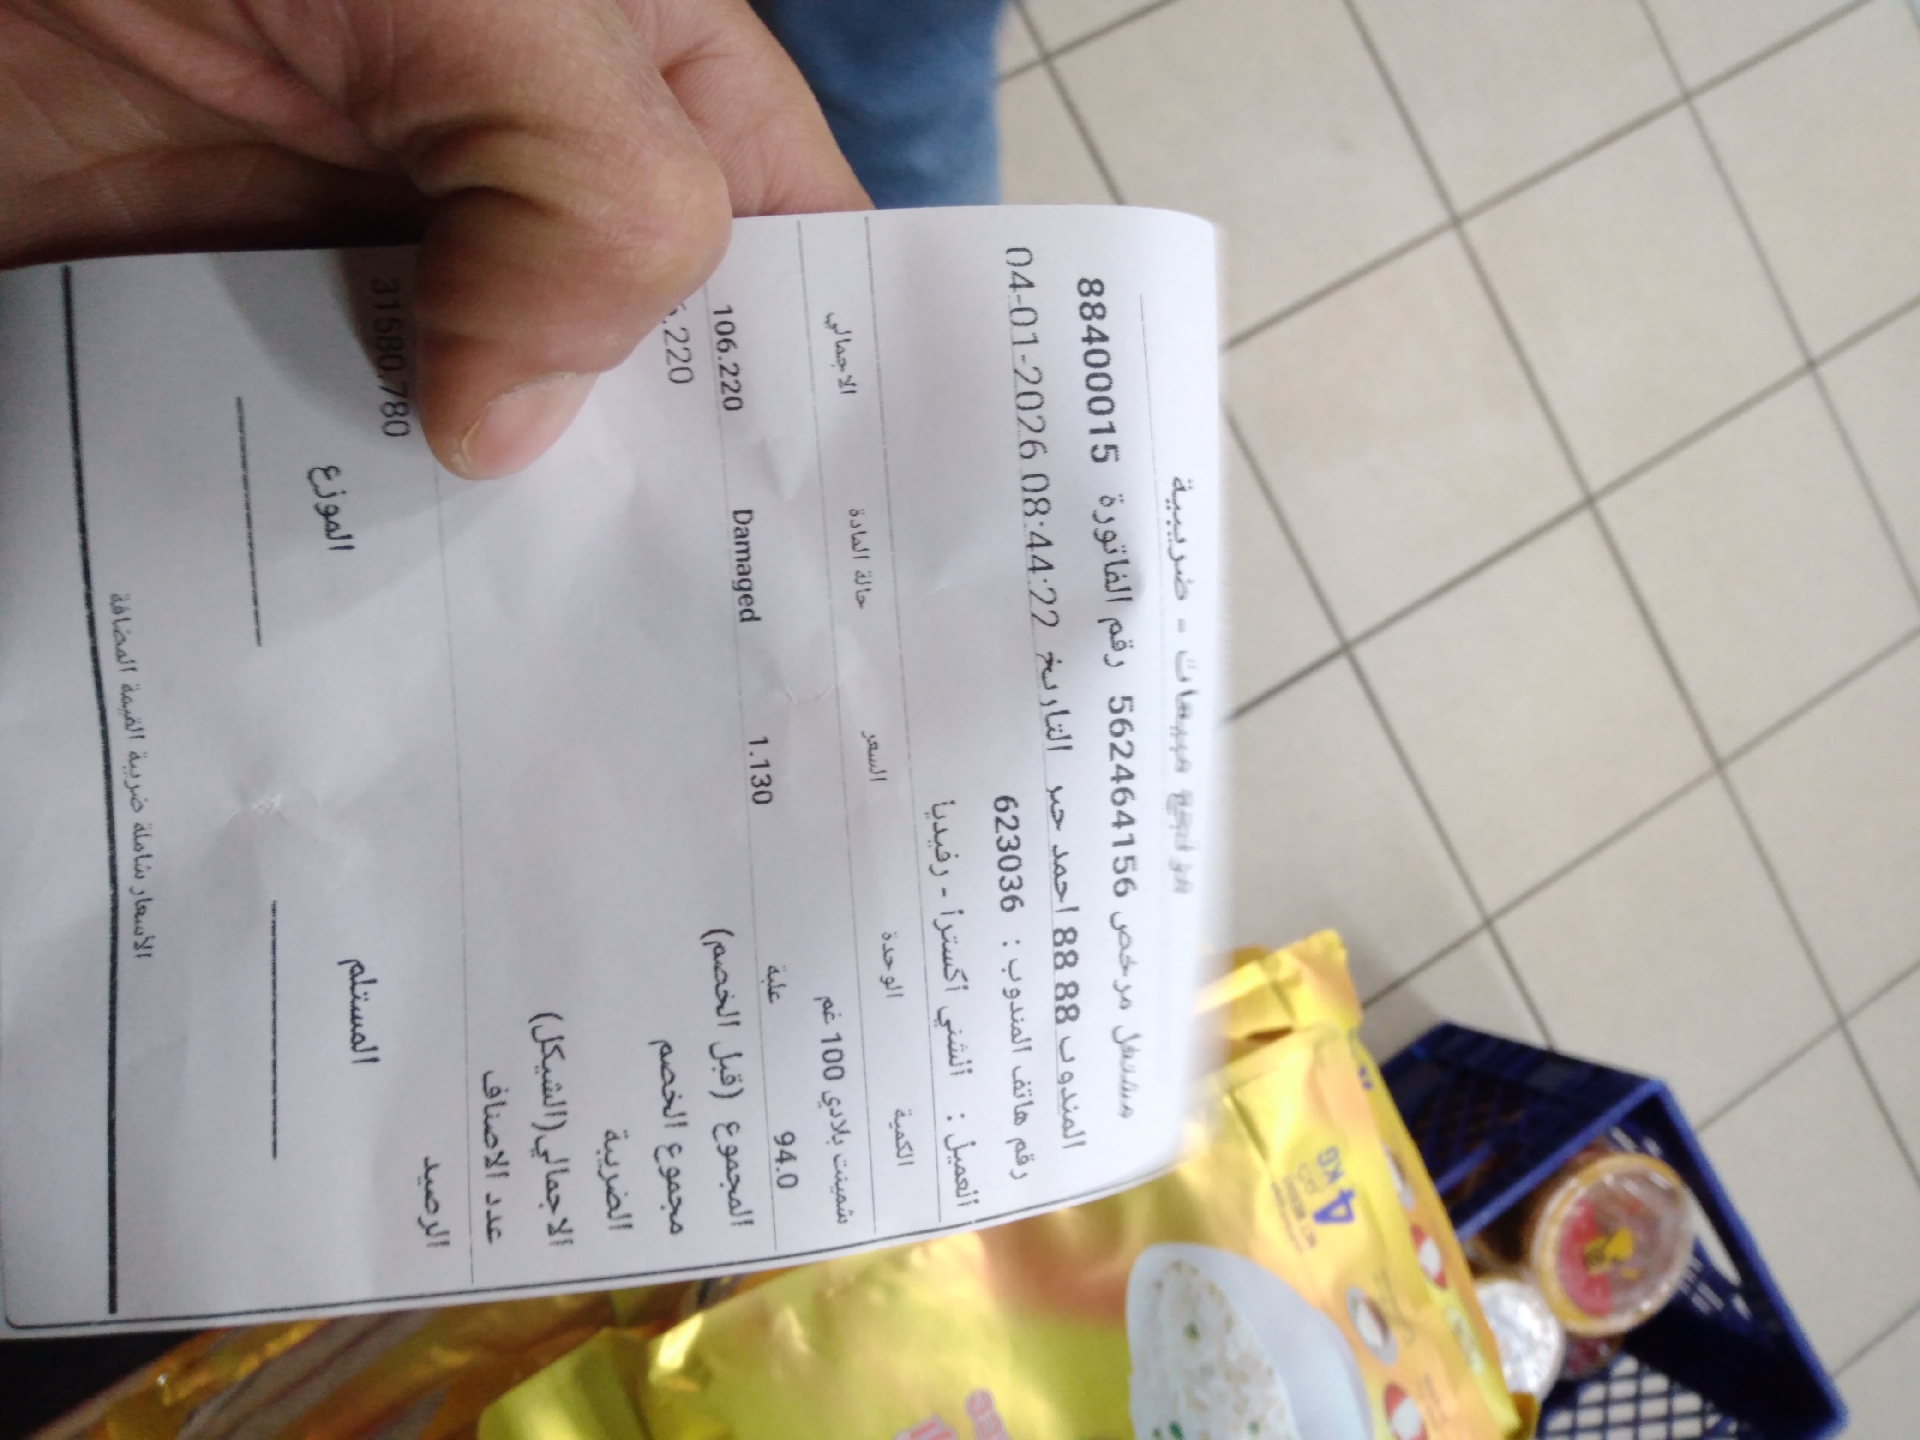 مراجع مبيعات - ضريبية
مشتغل مرخص 562464156 رقم الفاتورة 88400015
المندوب 88 88 احمد حبر التاريخ 04-01-2026 08:44:22
رقم هاتف المندوب : 623036
العميل : الشني اكسترا - رفيديا
الكمية الوحدة السعر حالة المادة الاجمالي
شمينت بلادي 100 غم
94.0 علبة 1.130 Damaged 106.220
المجموع (قبل الخصم) .220
مجموع الخصم
الضريبة
الاجمالي(الشيكل)
عدد الاصناف
الرصيد 31580.780
المستلم الموزع
الاسعار شاملة ضريبة القيمة المضافة
4 KG